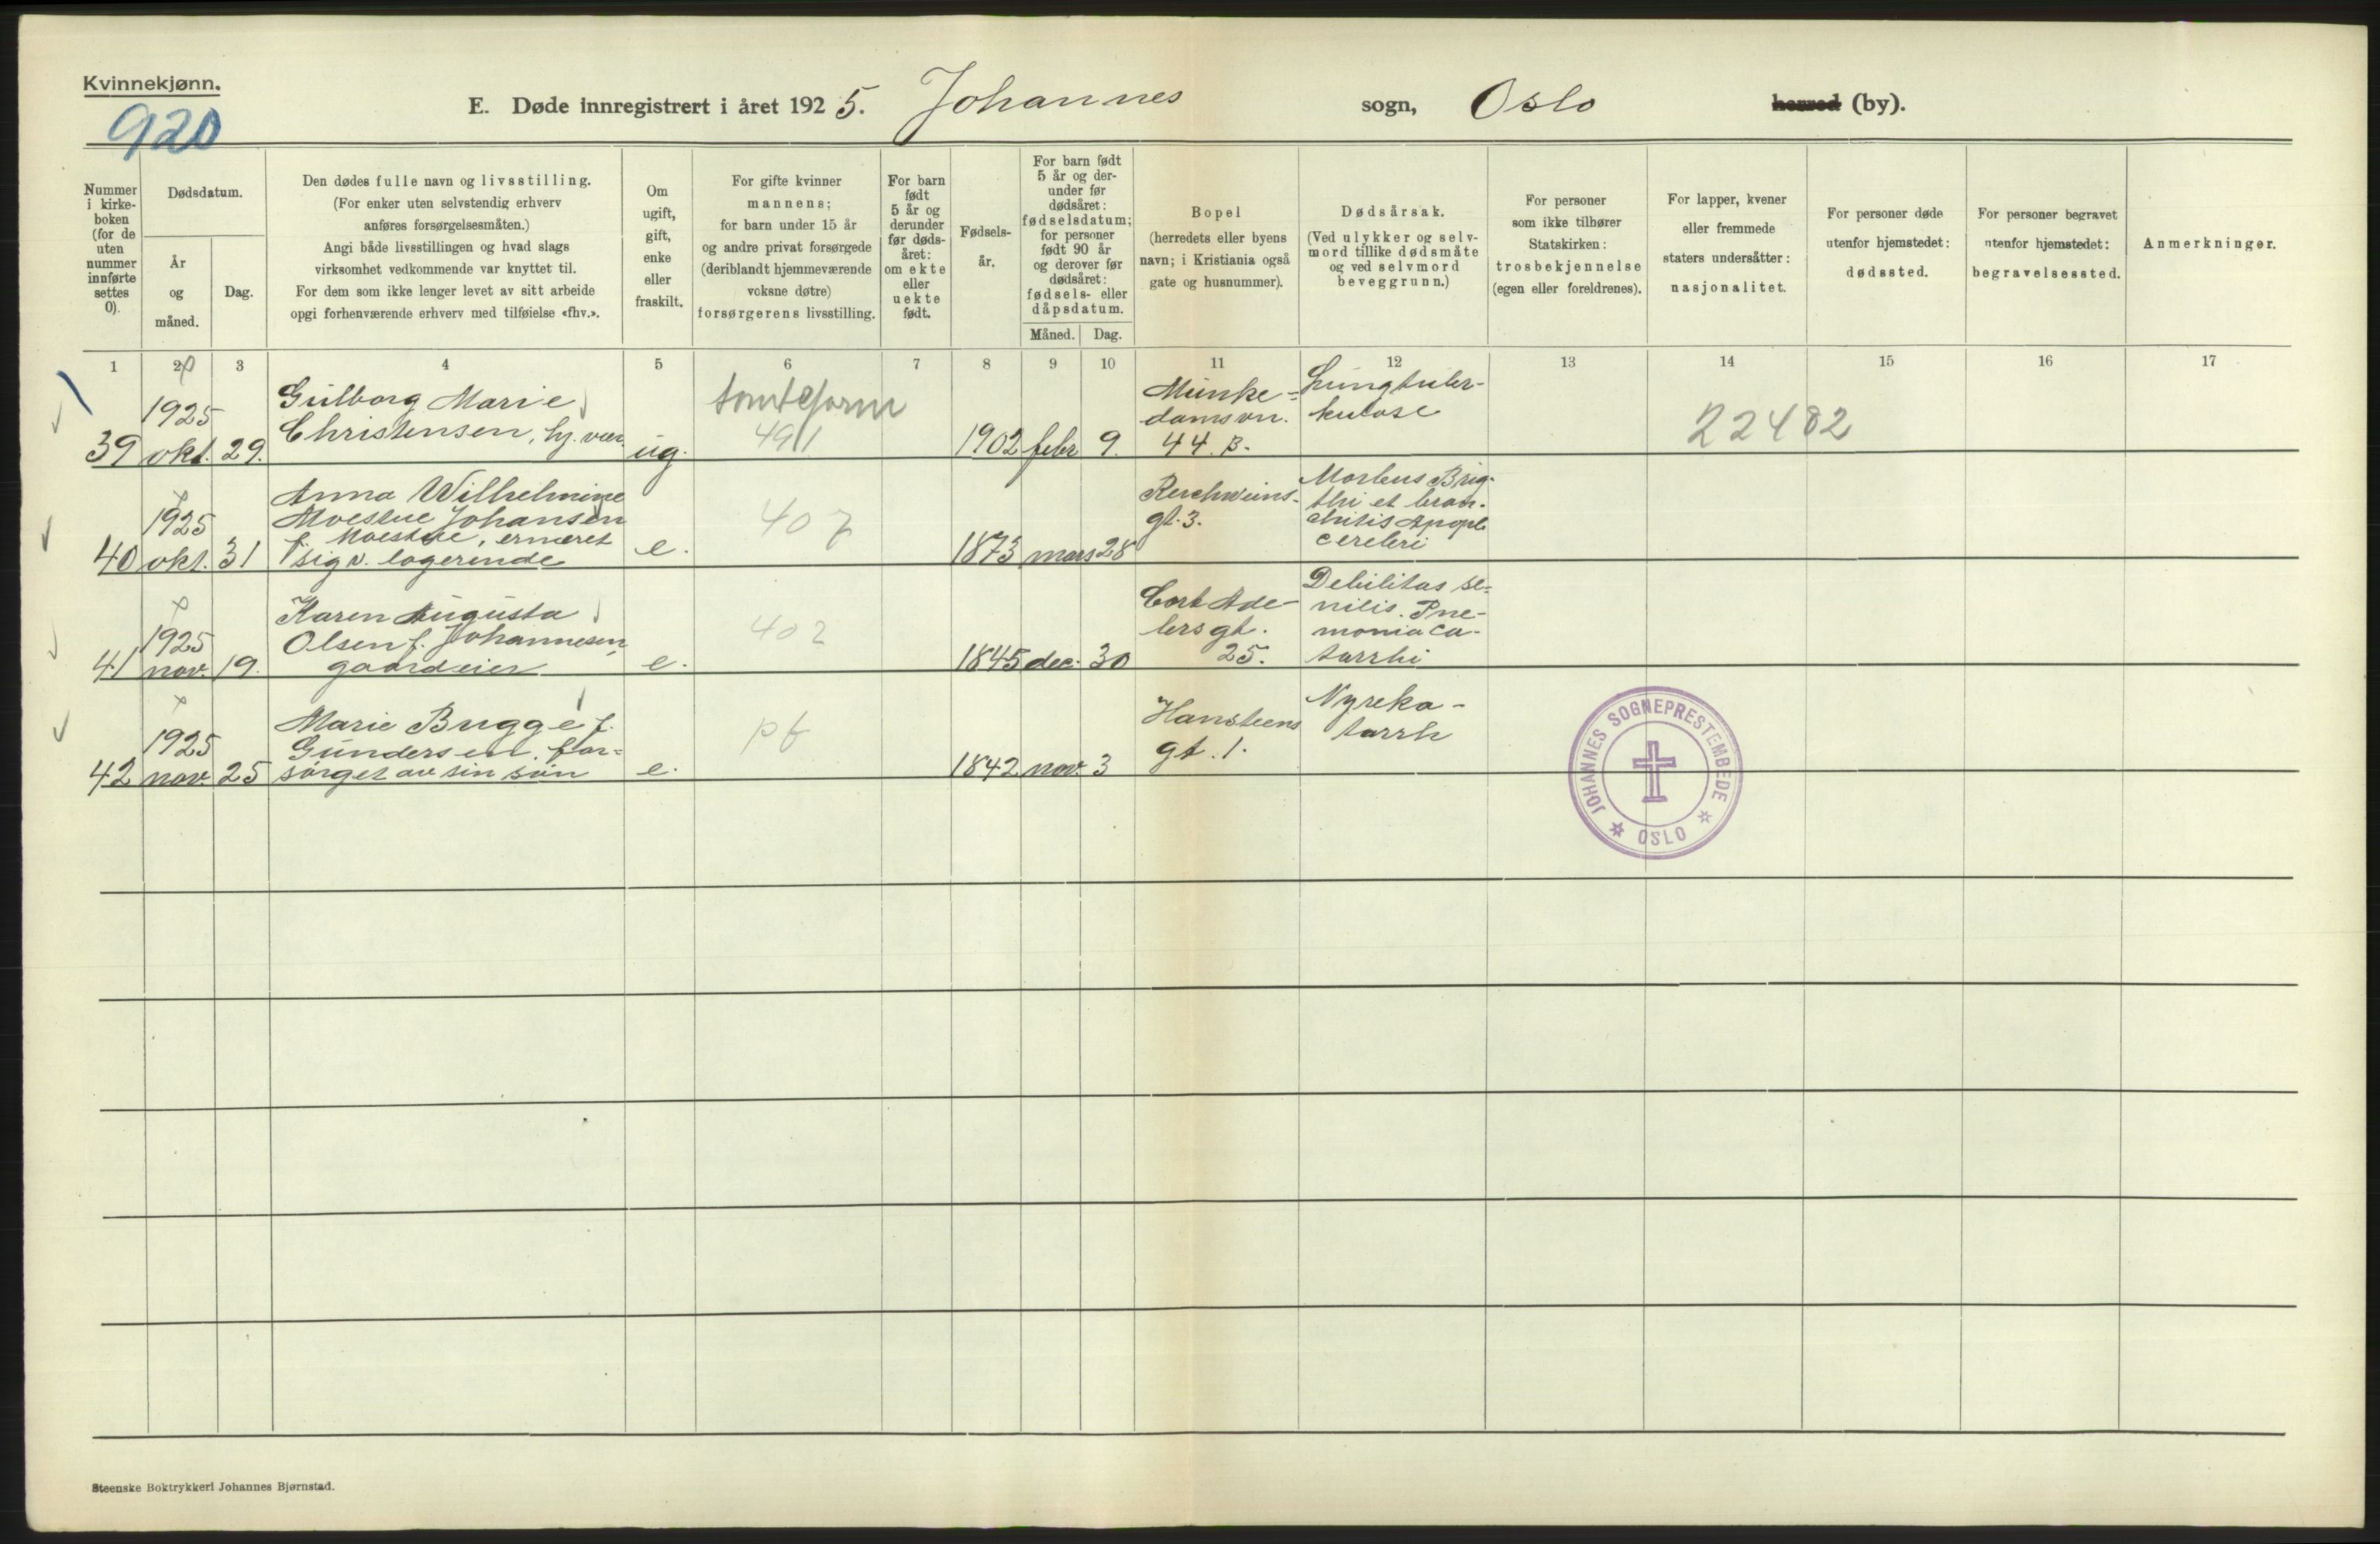 Kvinnekjønn.
920
E. Døde innregistrert i året 1925. Johannes sogn, Oslo herred (by).
Nummer
i kirke-
boken
(for de
uten
nummer
innførte
settes
0).
Dødsdatum.
År
og
måned.
Dag.
Den dødes fulle navn og livsstilling.
(For enker uten selvstendig erhverv
anføres forsørgelsesmåten.)
Angi både livsstillingen og hvad slags
virksomhet vedkommende var knyttet til.
For dem som ikke lenger levet av sitt arbeide
opgi forhenværende erhverv med tilføielse «fhv.».
Om
ugift,
gift,
enke
eller
fraskilt.
For gifte kvinner
mannens;
for barn under 15 år
og andre privat forsørgede
(deriblandt hjemmeværende
voksne døtre)
forsørgerens livsstilling.
For barn
født
5 år og
derunder
før døds-
året:
om ekte
eller
uekte
født.
Fødsels-
år.
For barn født
5 år og der-
under før
dødsåret:
fødselsdatum;
for personer
født 90 år
og derover før
dødsåret:
fødsels- eller
dåpsdatum.
Måned.
Dag.
Bopel
(herredets eller byens
navn; i Kristiania også
gate og husnummer).
Dødsårsak.
(Ved ulykker og selv-
mord tillike dødsmåte
og ved selvmord
beveggrunn.)
For personer
som ikke tilhører
Statskirken:
trosbekjennelse
(egen eller foreldrenes).
For lapper, kvener
eller fremmede
staters undersåtter:
nasjonalitet.
For personer døde
utenfor hjemstedet:
dødssted.
For personer begravet
utenfor hjemstedet:
begravelsessted.
Anmerkninger.
1 2 3 4 5 6 7 8 9 10 11 12 13 14 15 16 17
39
1925
okt. 29.
Gulborg Marie
Christensen, hj. vær.
ug.
491
1902 febr 9.
Munke-
damsvn.
44. B.
Lungtuber-
kulose
22482
40
1925
okt. 31
Anna Wilhelmine
Moestue Johansen
f. Moestue, ernæret
sig v. logerende
e.
407
1873 mars 28
gt. 3.
Morbus Brig-
thi et bron-
chitis Apopl.
cerebri
41
1925
nov. 19.
Karen Augusta
Olsen f. Johannesen,
gaardeier
e.
402
1845 dec. 30
Cort Ade-
lers gt.
25.
Debilitas se-
nilis. Pne-
monia ca-
tarrhi
42
1925
nov. 25
Marie Bugge f.
Gundersen, for-
sørget av sin søn
e.
pf
1842 nov. 3
Hansteens
gt. 1.
Nyreka-
tarrh
JOHANNES SOGNEPRESTEMBEDE
OSLO
Steenske Boktrykkeri Johannes Bjørnstad.